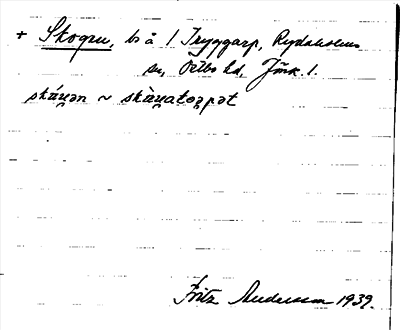 + Skogen, bs å 1 Tryggarp, Rydaholms
sn, Östbo hd, Jönk. l.
skáu̯ən ~ skàu̯atoṛpət
Fritz Andersson 1939.